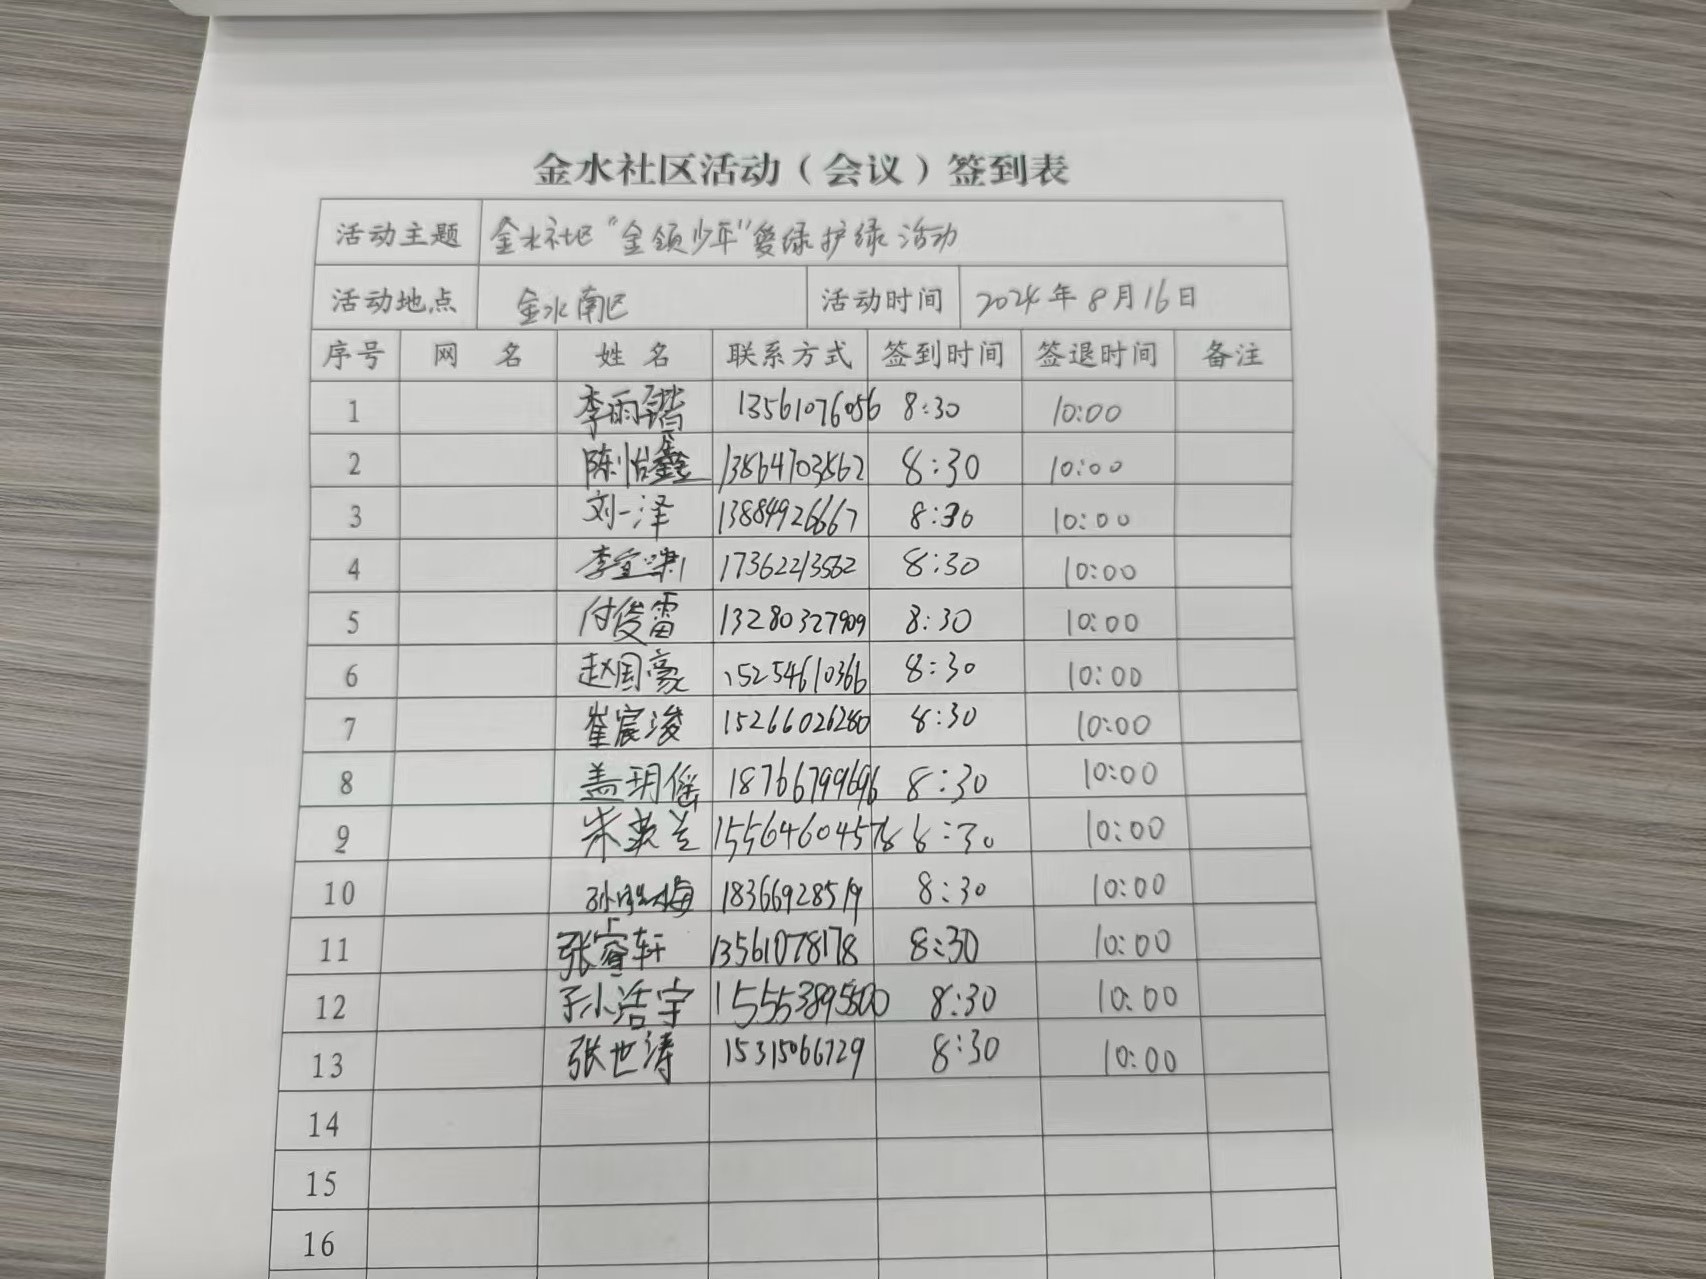 金水社区活动（会议）签到表
活动主题 金水社区“金领少年”爱绿护绿活动
活动地点 金水南区 活动时间 2024年8月16日
序号 网名 姓名 联系方式 签到时间 签退时间 备注
1 李雨锴 13561076056 8:30 10:00
2 陈怡鑫 13864703862 8:30 10:00
3 刘一泽 13884926667 8:30 10:00
4 李宜潇 17362213562 8:30 10:00
5 付俊雷 13280327909 8:30 10:00
6 赵国豪 15254610366 8:30 10:00
7 崔宸浚 15266026280 8:30 10:00
8 盖玥傜 18766799696 8:30 10:00
9 朱 兰 15564604578 8:30 10:00
10 孙 梅 18366928519 8:30 10:00
11 张睿轩 13561078178 8:30 10:00
12 孙浩宇 15553895500 8:30 10:00
13 张世涛 15315066729 8:30 10:00
14
15
16